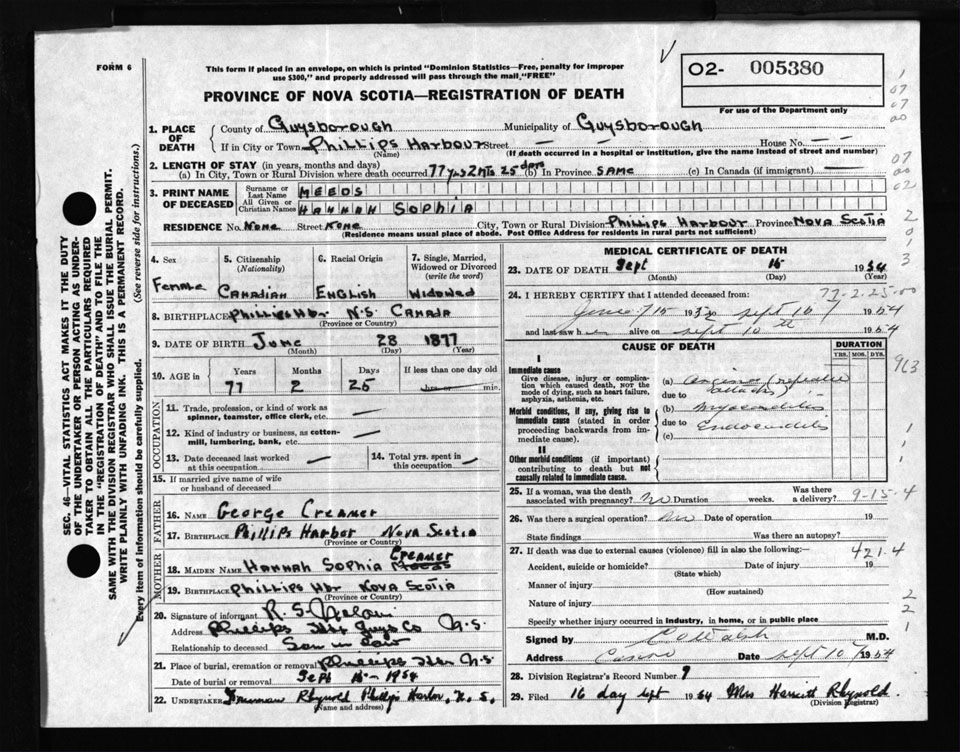 FORM 6
This form if placed in an envelope, on which is printed "Dominion Statistics—Free, penalty for improper
use $300," and properly addressed will pass through the mail "FREE"
O2- 005380
For use of the Department only
PROVINCE OF NOVA SCOTIA—REGISTRATION OF DEATH
SEC. 46—VITAL STATISTICS ACT MAKES IT THE DUTY
OF THE UNDERTAKER OR PERSON ACTING AS UNDER-
TAKER TO OBTAIN ALL THE PARTICULARS REQUIRED
IN THE "REGISTRATION OF DEATH" AND TO FILE THE
SAME WITH THE DIVISION REGISTRAR WHO SHALL ISSUE THE BURIAL PERMIT.
WRITE PLAINLY WITH UNFADING INK. THIS IS A PERMANENT RECORD.
Every item of information should be carefully supplied. (See reverse side for instructions.)
1. PLACE OF DEATH County of Guysborough Municipality of Guysborough
If in City or Town Phillips Harbour Street — — House No. — —
(Name) (If death occurred in a hospital or institution, give the name instead of street and number)
2. LENGTH OF STAY (in years, months and days)
(a) In City, Town or Rural Division where death occurred 77 yrs 2 mts 25 days (b) In Province SAME (c) In Canada (if immigrant) —
3. PRINT NAME OF DECEASED Surname or Last Name MEEDS
All Given or Christian Names HANNAH SOPHIA
RESIDENCE No. None Street None City, Town or Rural Division Phillips Harbour Province Nova Scotia
(Residence means usual place of abode. Post Office Address for residents in rural parts not sufficient)
4. Sex Female
5. Citizenship (Nationality) Canadian
6. Racial Origin English
7. Single, Married, Widowed or Divorced (write the word) Widowed
8. BIRTHPLACE Phillips Hbr N.S. Canada
(Province or Country)
9. DATE OF BIRTH June 28 1877
(Month) (Day) (Year)
10. AGE in Years 77 Months 2 Days 25 If less than one day old hrs. or min.
OCCUPATION
11. Trade, profession, or kind of work as spinner, teamster, office clerk, etc. —
12. Kind of industry or business, as cotton-mill, lumbering, bank, etc. —
13. Date deceased last worked at this occupation —
14. Total yrs. spent in this occupation —
15. If married give name of wife or husband of deceased
FATHER
16. NAME George Creamer
17. BIRTHPLACE Phillips Harbor Nova Scotia
(Province or Country)
MOTHER
18. MAIDEN NAME Hannah Sophia Meeds Creamer
19. BIRTHPLACE Phillips Hbr Nova Scotia
(Province or Country)
20. Signature of informant R. S.
Address Phillips Hbr Guys Co N.S.
Relationship to deceased Son in Law
21. Place of burial, cremation or removal Phillips Hbr N.S.
Date of burial or removal Sept 16 - 1954
22. UNDERTAKER Freeman Rhynold Phillips Harbor, N.S.
(Name and address)
MEDICAL CERTIFICATE OF DEATH
23. DATE OF DEATH Sept 15 1954
(Month) (Day) (Year)
77-2-25-00
24. I HEREBY CERTIFY that I attended deceased from:
June 15 1952 to Sept 10 1954
and last saw her alive on Sept 10th 1954
CAUSE OF DEATH
DURATION
YRS. MOS. DYS.
I
Immediate cause
Give disease, injury or complication which caused death, not the mode of dying, such as heart failure, asphyxia, asthenia, etc.
(a) Angina (repeated attacks)
due to
Morbid conditions, if any, giving rise to immediate cause (stated in order proceeding backwards from immediate cause).
(b) Myocarditis
due to Endocarditis
(c)
II
Other morbid conditions (if important) contributing to death but not causally related to immediate cause.
25. If a woman, was the death associated with pregnancy? No Duration weeks. Was there a delivery?
9-15-4
26. Was there a surgical operation? No Date of operation 19
State findings Was there an autopsy?
27. If death was due to external causes (violence) fill in also the following:—
421.4
Accident, suicide or homicide? Date of injury 19
(State which)
Manner of injury
(How sustained)
Nature of injury
Specify whether injury occurred in industry, in home, or in public place
Signed by M.D.
Address Canso Date Sept 10 1954
28. Division Registrar's Record Number 9
29. Filed 16 day Sept 1954 Mrs Harriett Rhynold.
(Division Registrar)